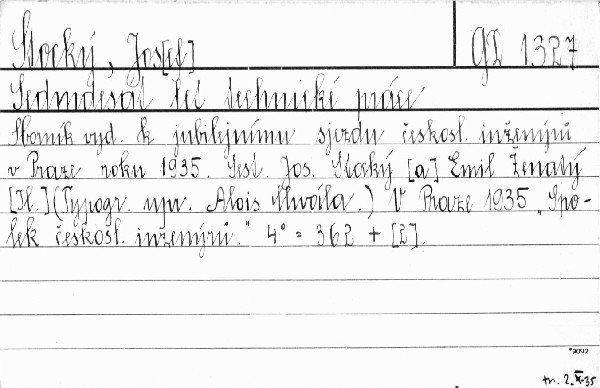 Stocký, Jos[ef] GD 1327
Sedmdesát let technické práce
Sborník vyd. k jubilejnímu sjezdu českosl. inženýrů
v Praze roku 1935. Sest. Jos. Stocký [a] Emil Ženatý
[Il.] (Typogr. upr. Alois Chvála.) V Praze 1935 „Spo-
lek českosl. inženýrů." 4° = 362 + [2].
*9092
tn. 2.XI.35